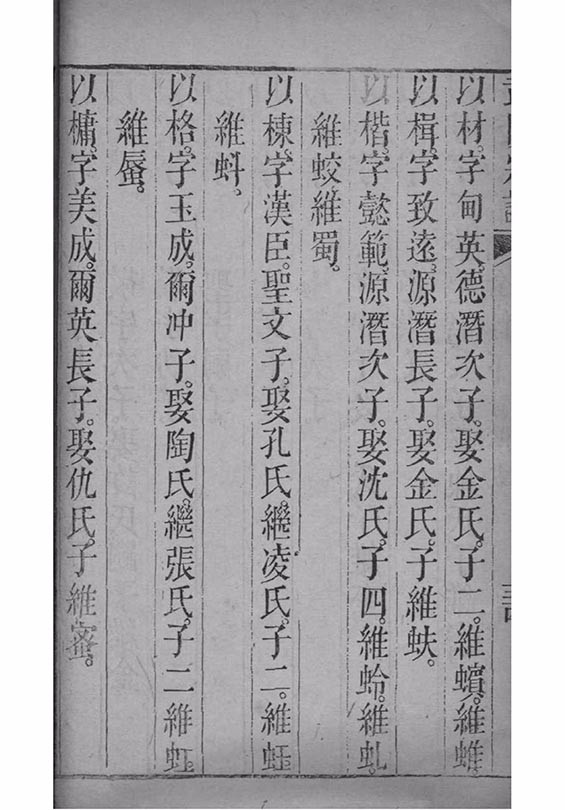 以材。字甸英。德潛次子。娶金氏。子二。維蠙。維蜼。
以楫。字致遠。源潛長子。娶金氏。子維蚨。
以楷。字懿範。源潛次子。娶沈氏。子四。維蛉。維虬。
維蛟。維蜀。
以棟。字漢臣。聖文子。娶孔氏。繼凌氏。子二。維蚟
維蚪。
以格。字玉成。爾冲子。娶陶氏。繼張氏。子二維虹。
維蜃。
以槦。字美成。爾英長子。娶仇氏。子維蜜。